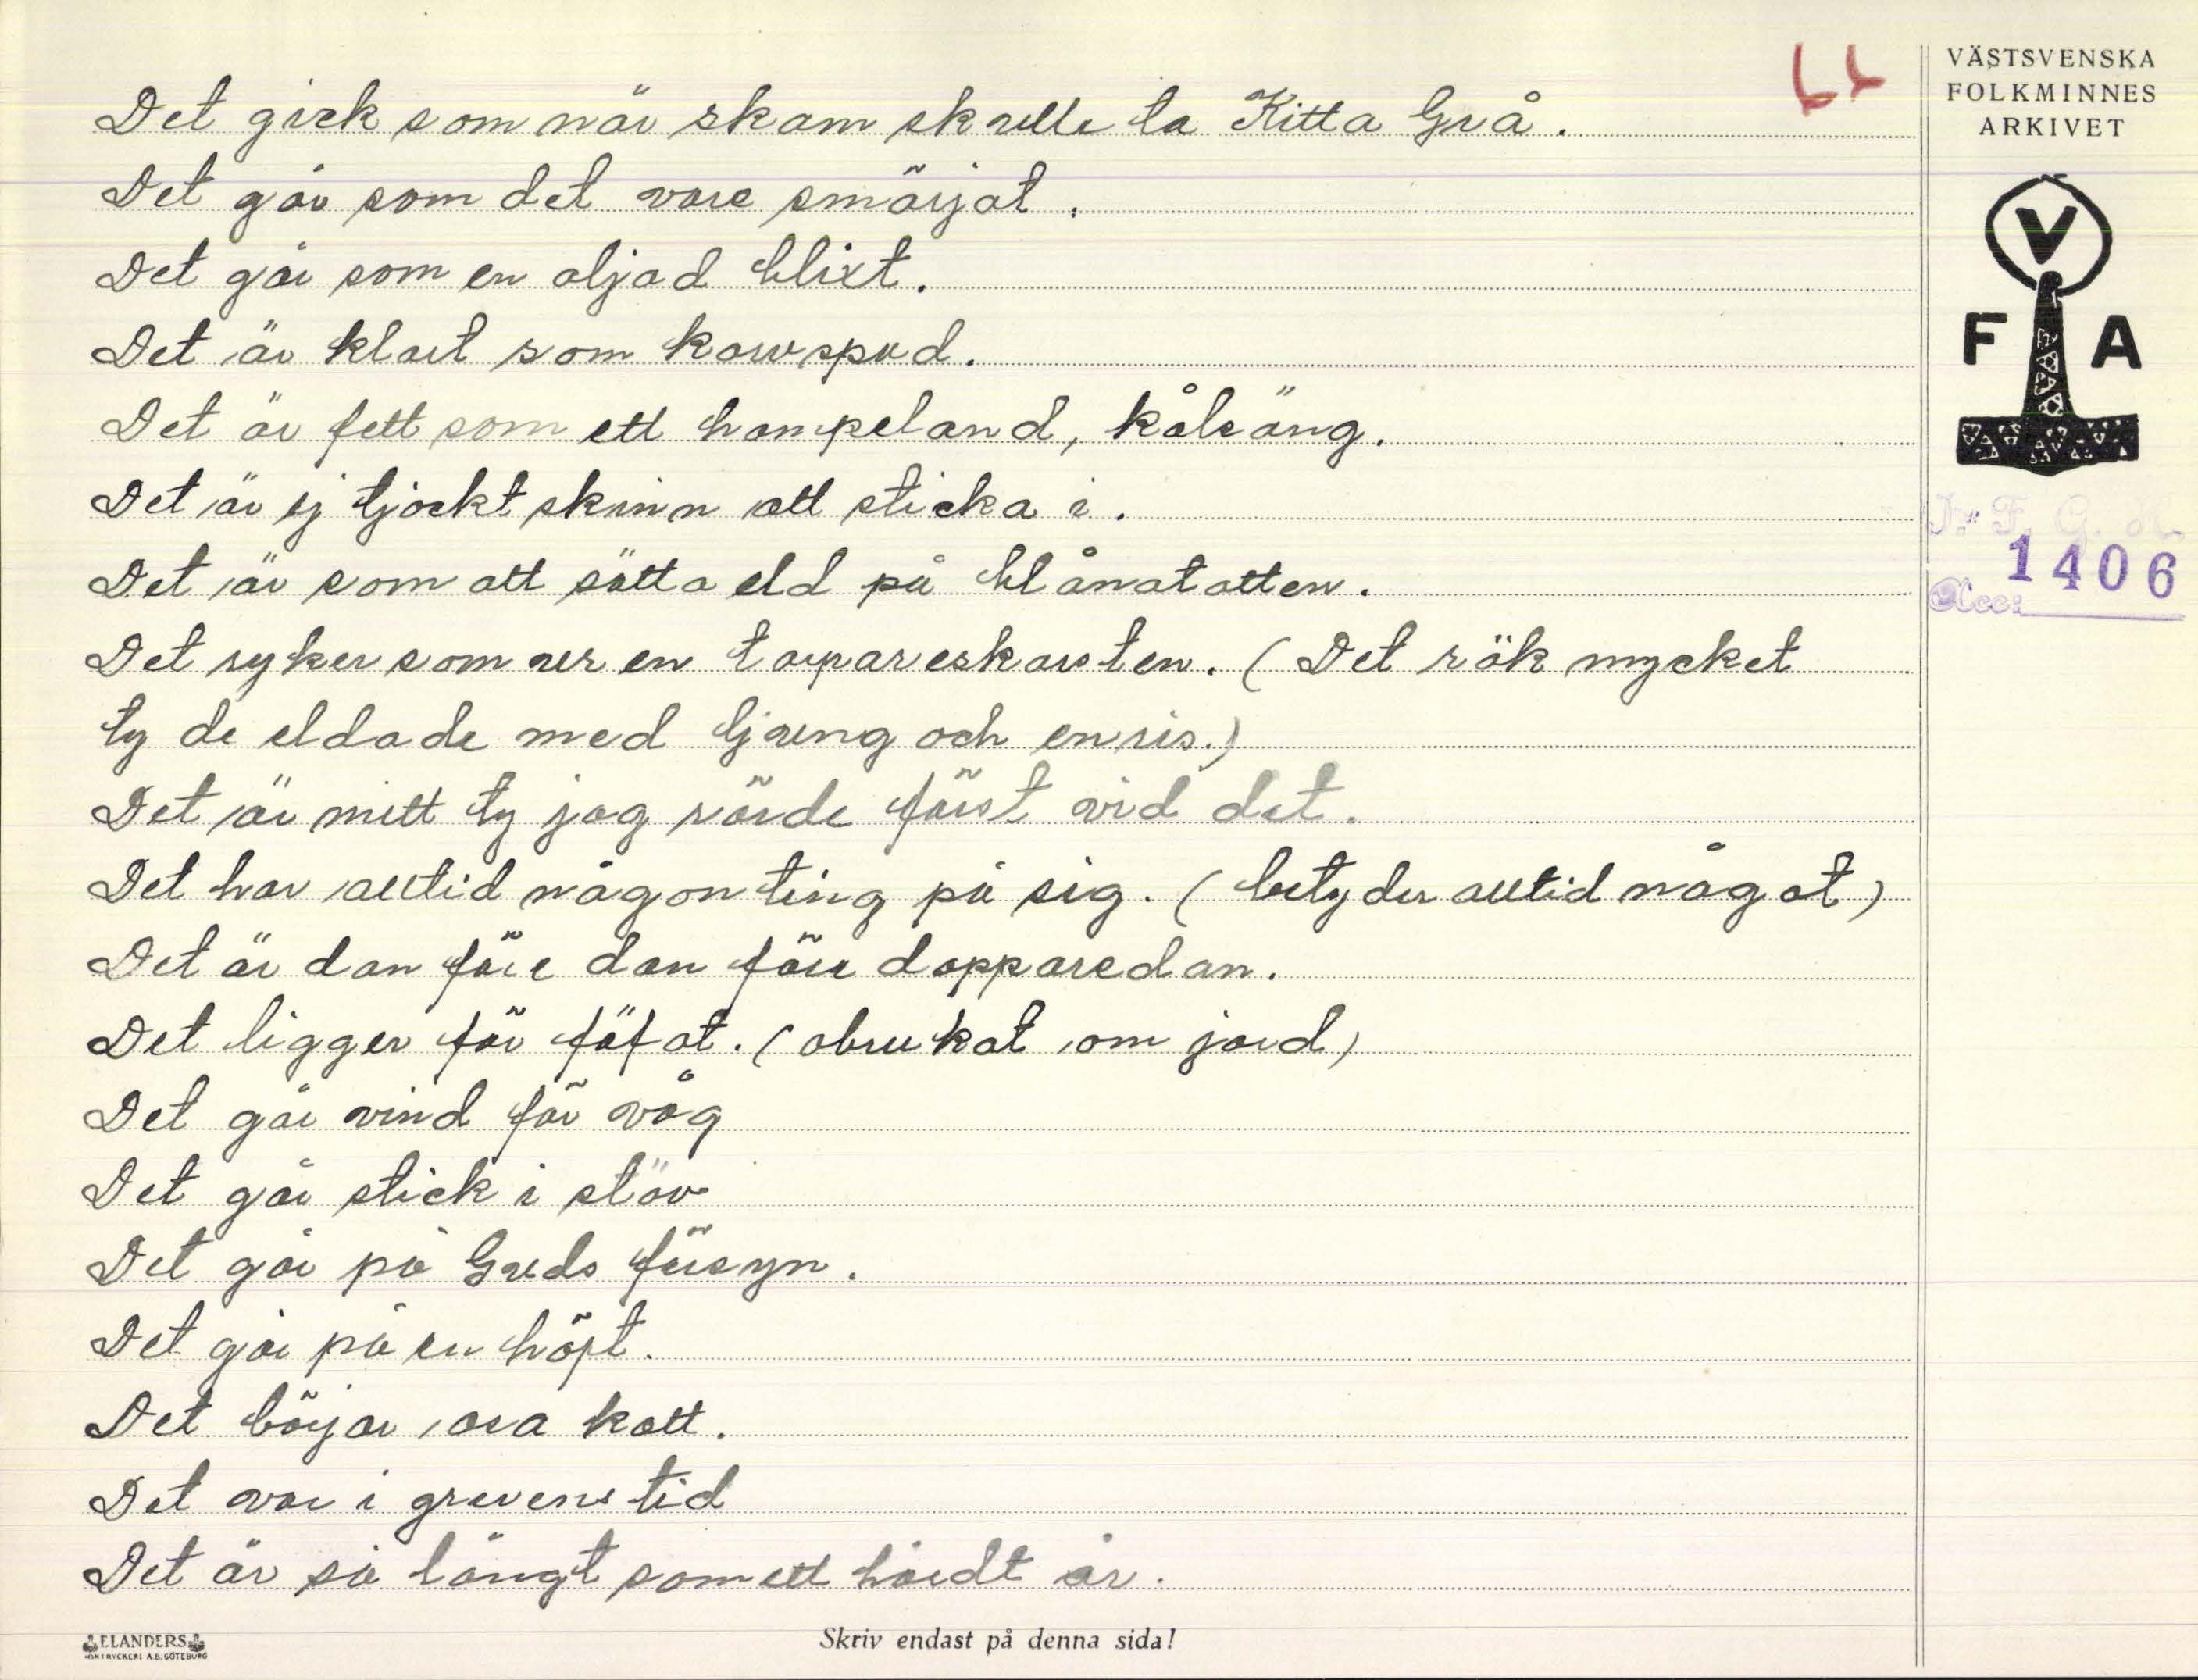 VÄSTSVENSKA
FOLKMINNES
ARKIVET
V
F A
1406
Acc:
Det gick som när skam skulle ta Kitta Grå.
Det går som det vore smärjat.
Det går som en oljad blixt.
Det är klart som korvspad.
Det är fett som ett hampeland, kålsäng.
Det är ej tjockt skinn att sticka i.
Det är som att sätta eld på blånatotten.
Det ryker som ur en torpareskorsten. (Det rök mycket
ty de eldade med ljung och enris.)
Det är mitt ty jag rörde först vid det.
Det har alltid någonting på sig. (betyder alltid något)
Det är dan före dan före dopparedan.
Det ligger för föfot. (obrukat om jord)
Det går vind för våg
Det går stick i stöv
Det går på Guds försyn.
Det går på en höft.
Det börjar osa katt.
Det var i grevens tid
Det är så långt som ett hårdt år.
ELANDERS
BOKTRYCKERI A.B. GÖTEBORG
Skriv endast på denna sida!